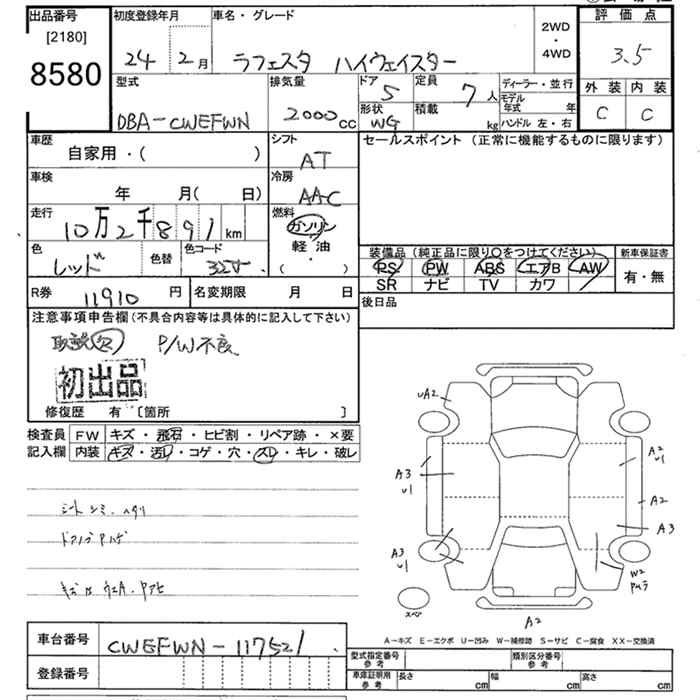 出品番号 初度登録年月 車名・グレード 評価点
[2180]
8580
24 2月 ラフェスタ ハイウェイスター 2WD・4WD 3.5
型式 排気量 ドア 定員 ディーラー・並行 外装 内装
DBA-CWEFWN 2000cc 5 7人 モデル年式 年 C C
形状 積載 ハンドル 左・右
WG kg
車歴 シフト セールスポイント(正常に機能するものに限ります)
自家用・( ) AT
車検 冷房
年 月( 日) AAC
走行 燃料
10万2千891km ガソリン
軽油
・
( )
色 色替 色コード 装備品(純正品に限り○をつけてください) 新車保証書
レッド PS PW ABS エアB AW 有・無
SR ナビ TV カワ
R券 11910円 名変期限 月 日 後日品
注意事項申告欄(不具合内容等は具体的に記入して下さい)
取説 P/W不良
初出品
修復歴 有 [箇所 ]
検査員 FW キズ・飛石・ヒビ割・リペア跡・×要
記入欄 内装 キズ・汚レ・コゲ・穴・スレ・キレ・破レ
uA2
A2
u1
A3
u1
A2
A3
A3
u1
W2
スペア
A2
シートシミ・ヘタリ
ドアノブハゲ
A-キズ E-エクボ U-凹み W-補修跡 S-サビ C-腐食 XX-交換済
車台番号 CWEFWN-117521
登録番号
型式指定番号 参考 類別区分番号 参考
車庫証明用 参考 長さ cm 幅 cm 高さ cm